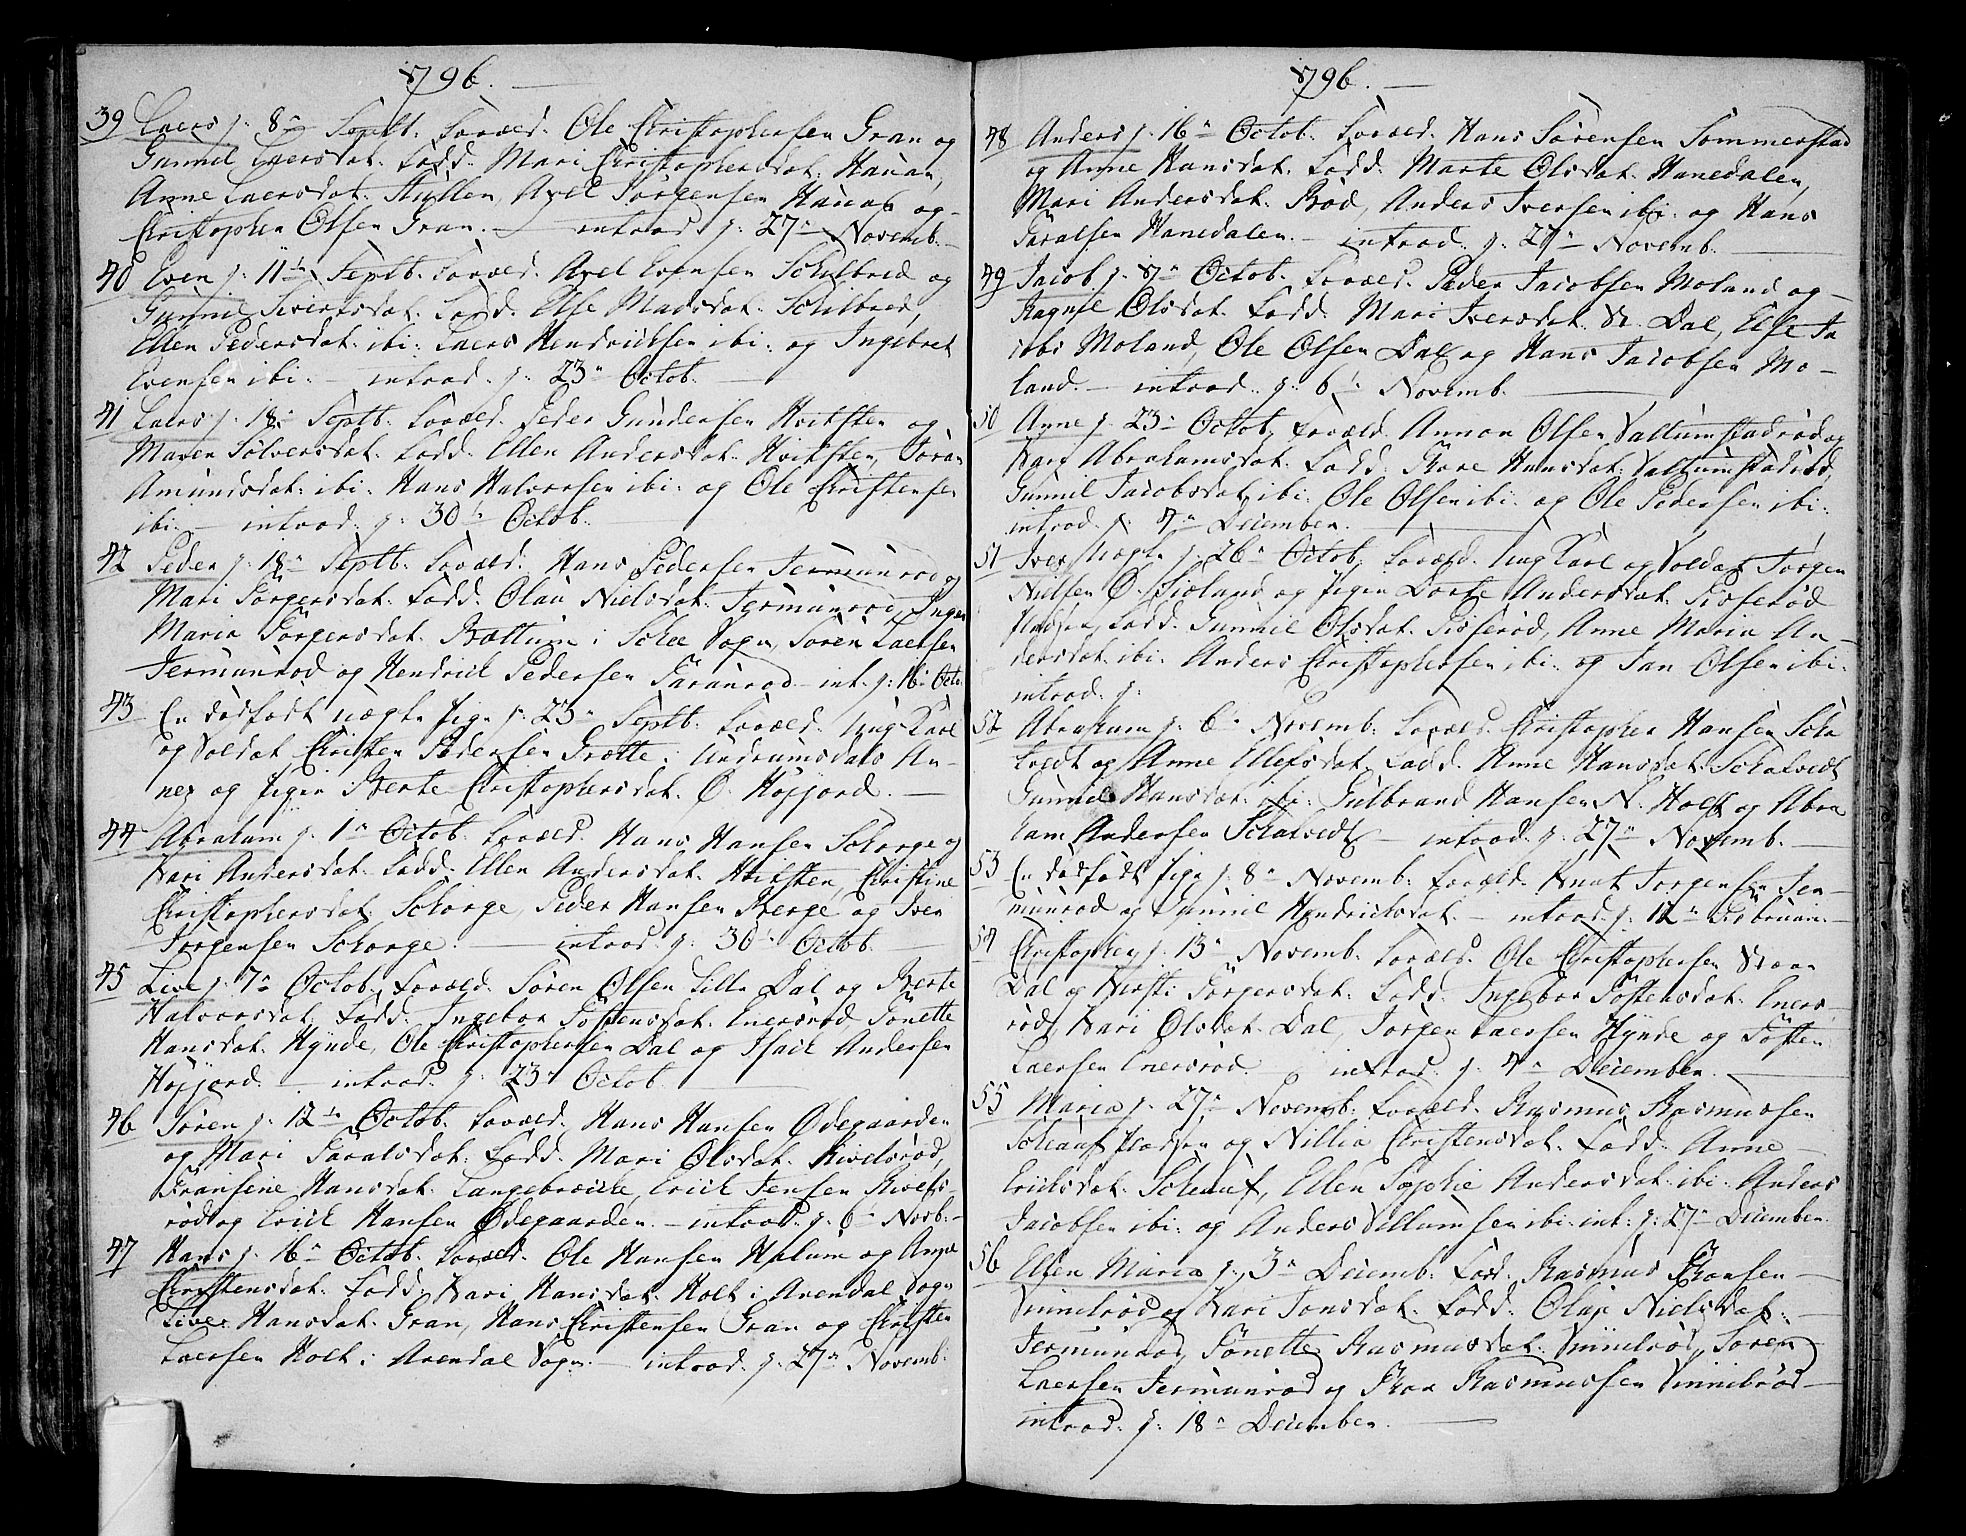 1796.
39 Laers f: 8de Septb. Foræld. Ole Christophersen Gran og
Gunnil Laersdat. Fadd. Mari Christophersdat. Hauan,
Anne Laersdat. Hullen, Axel Jørgensen Hauan og
Christopher Olsen Gran. — introd. f: 27de Novemb.
40 Even f: 11te Septb. Foræld. Axel Evensen Schilbred og
Gunnil Siversdat. Fadd. Else Madsdat. Schilbred,
Ellen Pedersdat. ibi. Laers Hendrichsen ibi. og Ingebret
Evensen ibi. — introd. f: 23de Octob.
41 Laers f: 18de Septb. Foræld. Peder Gundersen Hvitsten og
Maren Sølversdat. Fadd. Ellen Andersdat. Hvitsten, Joran
Amundsdat. ibi. Hans Halvorsen ibi. og Ole Christensen
ibi. — introd. f: 30te Octob.
42 Peder f: 18de Septb. Foræld. Hans Pedersen Jermunrød og
Mari Jørgensdat. Fadd. Olau Nielsdat. Jermunrød, Inger
Maria Jørgensdat. Bættum i Schee Sogn, Søren Laersen
Jermunrød og Hendrich Pedersen Faranrød — int. f: 16de Octo.
43 En dødfødt uægte Pige f: 23de Septb. Foræld. Ung Karl
og Soldat Christen Pedersen Grotte i Undrumsdals An-
nex og Pigen Berte Christophersdat. Ø. Høyjord. —
44 Abraham f: 1te Octob. Foræld. Hans Hansen Schorge og
Kari Andersdat. Fadd. Ellen Andersdat. Hvitsten, Christine
Christophersdat. Schorge, Peder Hansen Berge og Iver
Jørgensen Schorge. — introd. f: 30te Octob.
45 Live f: 7de Octob. Foræld. Søren Olsen Lille Dal og Berte
Halvorsdat. Fadd. Ingebor Jostensdat. Enersrød, Jonette
Hansdat. Hynde, Ole Christophersen Dal og Isach Andersen
Høyjord. — introd. f: 23de Octob.
46 Søren f: 12te Octob. Foræld. Hans Hansen Ødegaarden
og Mari Jaralsdat. Fadd. Mari Olsdat. Rivelsrød,
Fransine Hansdat. Langebrække, Erich Jensen Rivels-
rød og Erich Hansen Ødegaarden. — introd. f: 6te Novb. —
47 Hans f: 16de Octob. Foræld. Ole Hansen Hælum og Anne
Christensdat. Fadd. Kari Hansdat. Holt i Arendal Sogn
Liver Hansdat. Gran, Hans Christensen Gran og Christen
Laersen Holt i Arendal Sogn. — introd. f: 27de Novemb.
1796.
48 Anders f: 16de Octob. Foræld. Hans Sørensen Sommerstad
og Anne Hansdat. Fadd. Marte Olsdat. Hanedalen,
Mari Andersdat. Rød, Anders Iversen ibi. og Hans
Jaralsen Hanedalen. — introd. f: 27de Novemb.
49 Jacob f: 17de Octob. Foræld. Peder Jacobsen Moland og
Ragnil Olsdat. Fadd. Mari Iversdat. St. Dal, Else Ja
cobs Moland, Ole Olsen Dal og Hans Jacobsen Mo-
land. — introd. f: 6te Novemb.
50 Anne f: 23de Octob. Foræld. Annon Olsen Vallumstadrød og
Kari Abrahamsdat. Fadd. Tore Hansdat. Vallumstadrød,
Gunnil Jacobsdat. ibi. Ole Olsen ibi. og Ole Pedersen ibi.
introd. f: 4de December.
51 Iver, Uægte f: 26de Octob. Foræld. Ung Karl og Soldat Jørgen
Nielsen Ø. og Pigen Dorte Andersdat. Fisserød
Fadd. Gunnil Olsdat. Fisserød, Anne Maria An-
dersdat. ibi. Anders Christophersen ibi. og Jan Olsen ibi.
introd. f:
52 Abraham f: 6te Novemb. Foræld. Christopher Hansen Scha
lvedt og Anne Ellefsdat. Fadd. Anne Hansdat. Schalvedt
Gunnil Hansdat. ibi. Gulbrand Hansen N. Holt og Abra
ham Andersen Schalvedt — introd. f: 27de Novemb. —
53 En dødfødt Pige f: 8de Novemb. Foræld. Knut Jørgensen Jer-
munrød og Gunnil Hendrichsdat. — introd. f: 12te Februari. —
54 Christopher f: 13de Novemb. Foræld. Ole Christophersen Store
Dal og Kirsti Jørgensdat. Fadd. Ingebor Jostensdat. Eners-
rød, Kari Olsdat. Dal, Jørgen Laersen Hynde og Josten
Laersen Enersrød — introd. f: 4de December. —
55 Maria f: 27de Novemb. Foræld. Rasmus Rasmussen
Schauf og Nillia Christensdat. Fadd. Anne
Erichsdat. Schauf, Ellen Sophie Andersdat. ibi. Anders
Jacobsen ibi. og Anders Villumsen ibi. int. f: 27de December.
56 Ellen Maria f: 3de Decemb. Foræld. Rasmus Thorsen
Vinnelrød og Kari Jonsdat. Fadd. Olau Nielsdat.
Jermunrød, Jonette Rasmusdat. Vinnelrød, Søren
Laersen Jermunrød og Thor Rasmussen Vinnelrød —
introd. f: 18de December. —